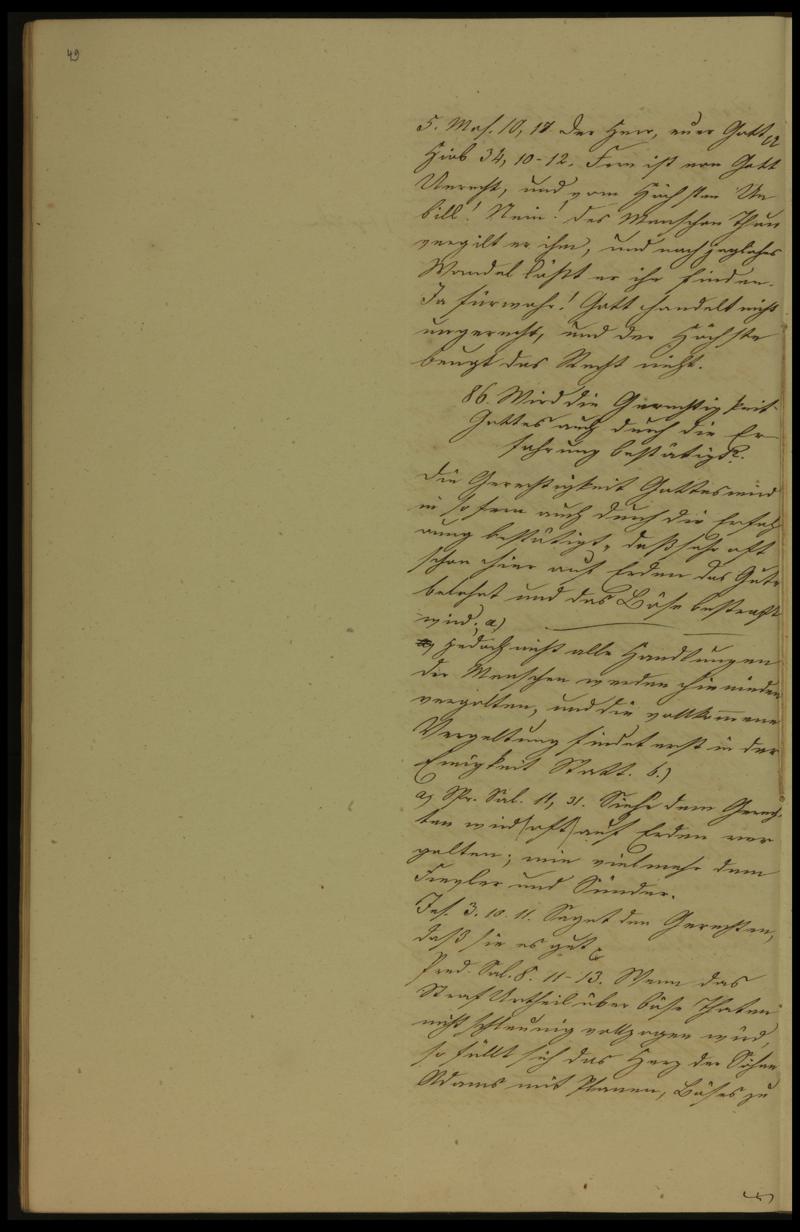 49
5. Mos. 10, 17 Der Herr, euer Gott
Hiob 34, 10-12. Fern ist von Gott
Unrecht, und vom Höchsten Un
bill! Nein! des Menschen Thun
vergilt er ihm, und nach jegliches
Wandel läßt er ihn finden.
Ja fürwahr! Gott handelt nicht
ungerecht, und der Höchste
beugt das Recht nicht.
86. Wird die Gerechtigkeit
Gottes auch durch die Er
fahrung bestätigt?
Die Gerechtigkeit Gottes wird
in so fern auch durch die Erfah
rung bestätigt, daß sehr oft
schon hier auf Erden das Gute
belohnt und das Böse bestraft
wird; a)
jedoch nicht alle Handlungen
der Menschen werden hinieden
vergolten, und die vollkommene
Vergeltung findet erst in der
Ewigkeit Statt. b.)
a) Spr. Sal. 11, 31. Siehe dem Gerech-
ten wird (oft) auf Erden ver
golten; wie vielmehr dem
Frevler und Sünder.
Jes. 3. 10. 11. Saget den Gerechten,
daß sie es gut
Pred. Sal. 8. 11-13. Wenn das
Straf Urtheil über böse Thaten
nicht schleunig vollzogen wird,
so füllt sich das Herz der Söhne
Adams mit Planen, Böses zu